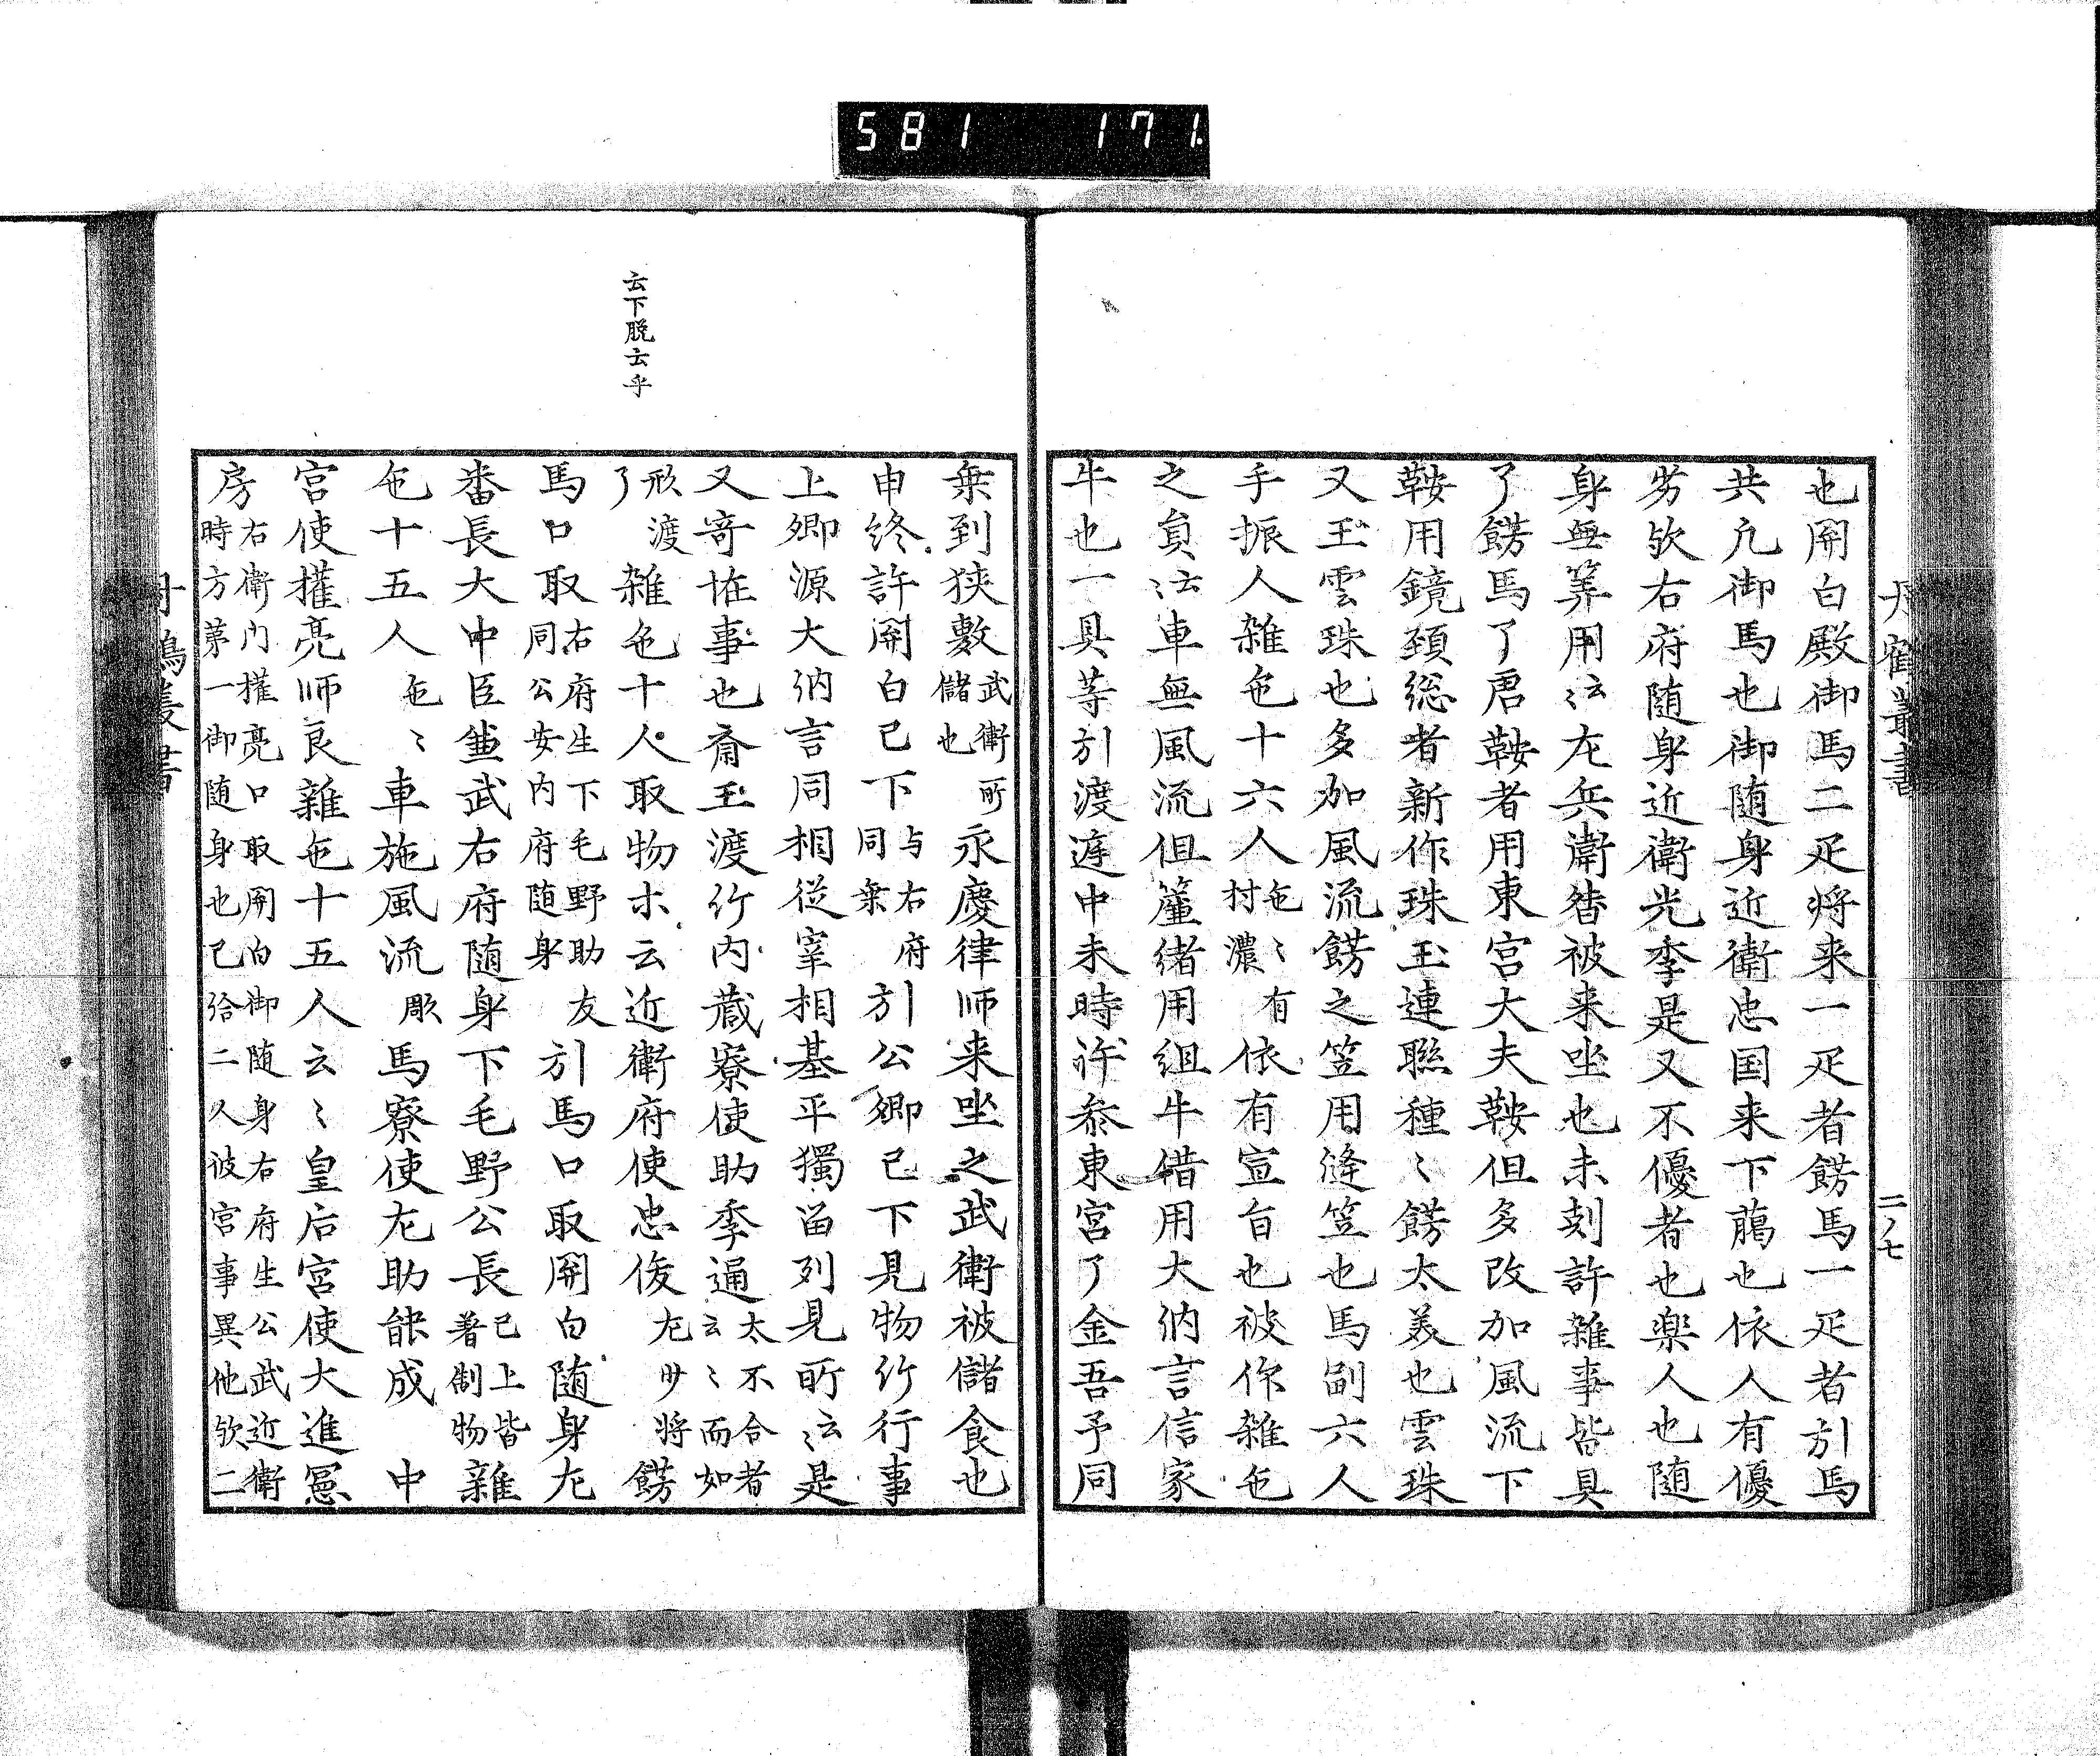 581 171
丹鶴叢書
二ノ七
也関白殿御馬二疋将来一疋者餝馬一疋者引馬
共凡御馬也御随身近衛忠国来下﨟也依人有優
労欤右府随身近衛光季是又不優者也楽人也随
身無筭用云〻左兵衛督被来坐也未刻許雑事皆具
了餝馬了唐鞍者用東宮大夫鞍但多改加風流下
鞍用鏡頚総者新作珠玉連聯種〻餝太美也雲珠
又玉雲珠也多加風流餝之笠用縫笠也馬副六人
手振人雑色十六人色〻有村濃依有宣旨也被作雑色
之負云〻車無風流但簾緒用組牛借用大納言信家
牛也一具等引渡庭中未時許参東宮了金吾予同
乗到狭敷武衛所儲也永慶律师来坐之武衛被儲食也
申終許関白已下与右府同乗引公卿已下見物竹行事
上卿源大納言同相従宰相基平獨留列見所云〻是
又竒恠事也齋王渡竹内蔵寮使助季通太不合者云〻而如
形渡了雑色十人取物木云近衛府使忠俊左少将餝
云下脱云乎
馬口取右府生下毛野助友同公安内府随身引馬口取関白随身左
番長大中臣兼武右府随身下毛野公長已上皆著制物雑
色十五人色〻車施風流彫馬寮使左助能成 中
宮使権亮师良雑色十五人云〻皇后宮使大進冕
房右衛门権亮口取関白御随身右府生公武近衛時方第一御随身也已給二人彼宮事異他欤二
丹鶴叢書